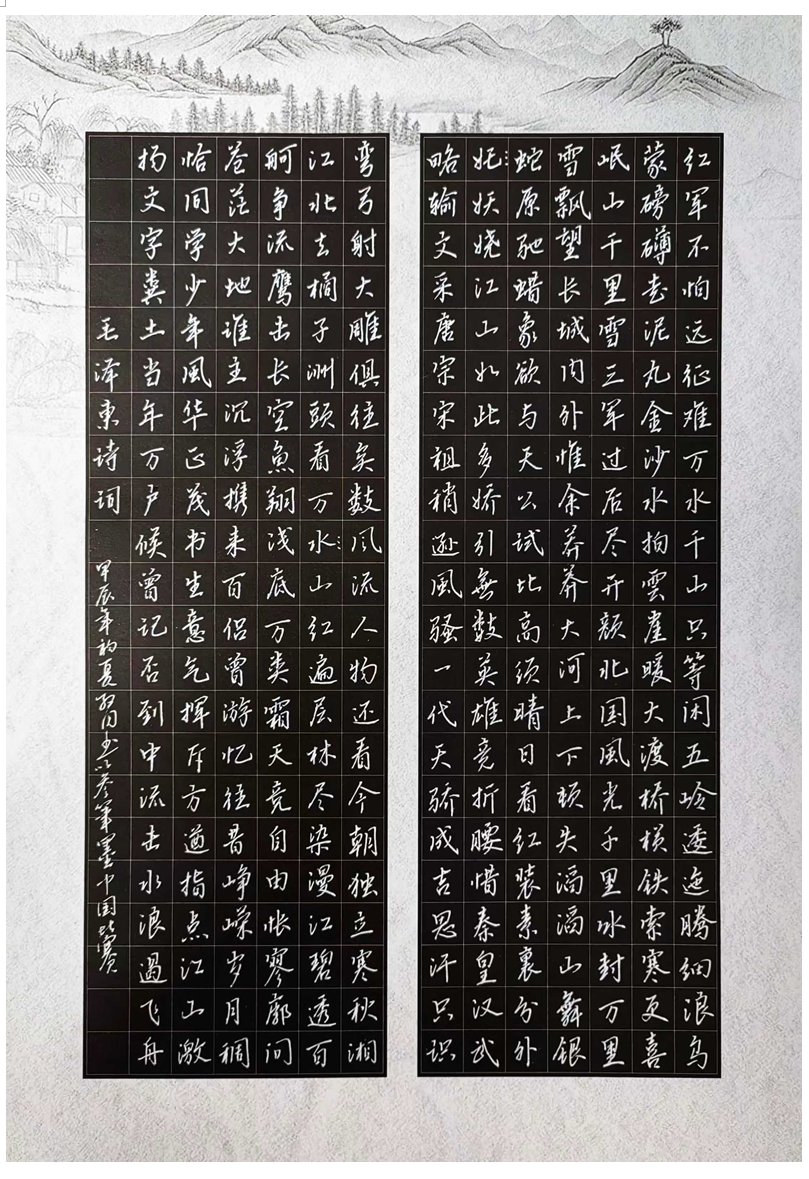 红军不怕远征难万水千山只等闲五岭逶迤腾细浪乌
蒙磅礴走泥丸金沙水拍雲崖暖大渡桥横铁索寒更喜
岷山千里雪三军过后尽开颜北国風光千里冰封万里
雪飘望长城内外惟余莽莽大河上下顿失滔滔山舞银
蛇原驰蜡象欲与天公试比高须晴日看红装素裹分外
妖娆江山如此多娇引無数英雄竞折腰惜秦皇汉武
略输文采唐宗宋祖稍逊風骚一代天骄成吉思汗只识
弯弓射大雕俱往矣数风流人物还看今朝独立寒秋湘
江北去橘子洲頭看万水山红遍层林尽染漫江碧透百
舸争流鹰击长空魚翔浅底万类霜天竞自由怅寥廓问
苍茫大地谁主沉浮携来百侣曾游忆往昔峥嵘岁月稠
恰同学少年風华正茂书生意气挥斥方遒指点江山激
扬文字粪土当年万户候曾记否到中流击水浪遏飞舟
毛泽东诗词
甲辰年初夏书以参笔墨中国比赛